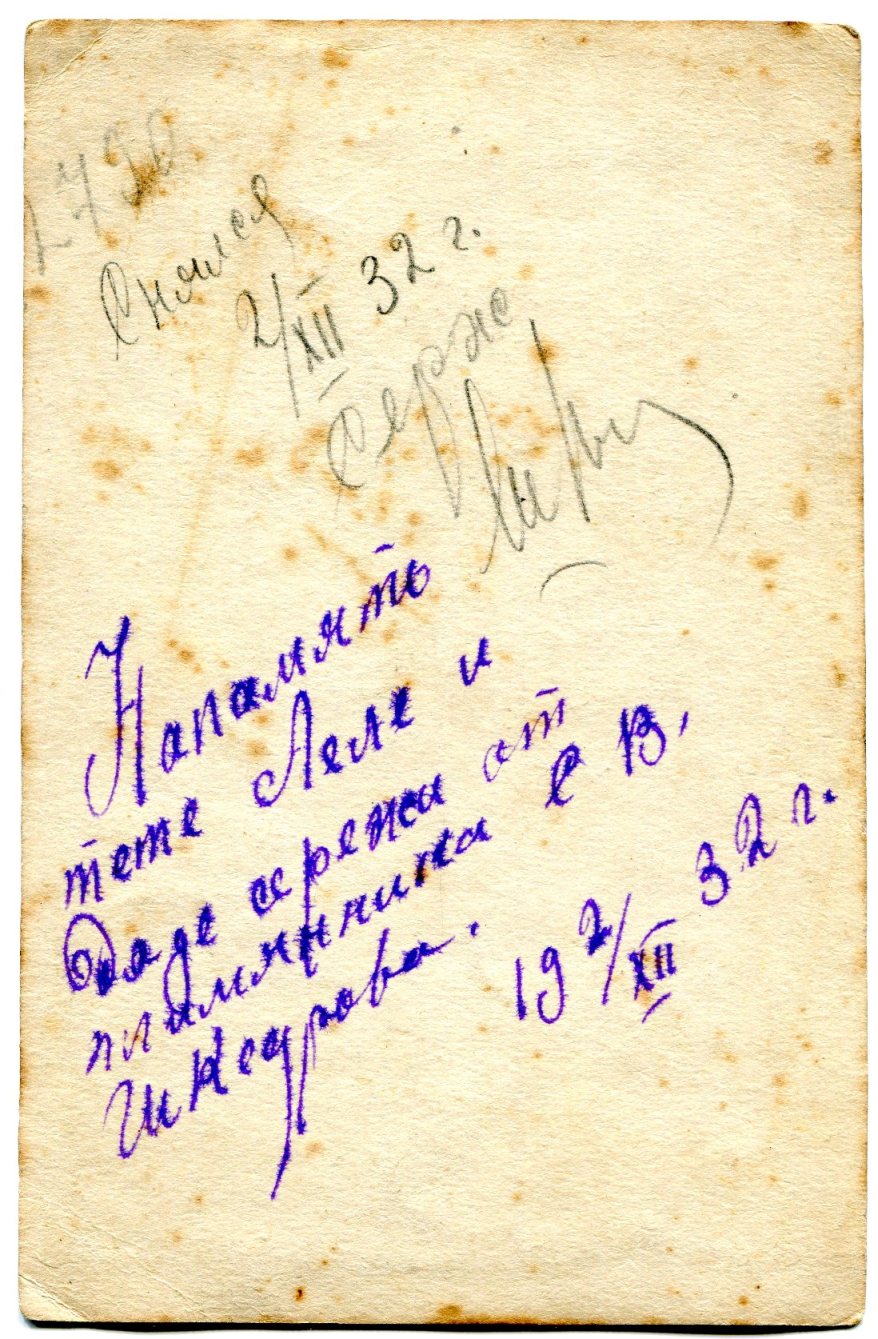 2720
Снялся
2/XII 32 г.
Серж
Напамять
тете Леле и
дяде сережи от
племянника С В.
Шкедрова.
19 2/XII 32 г.